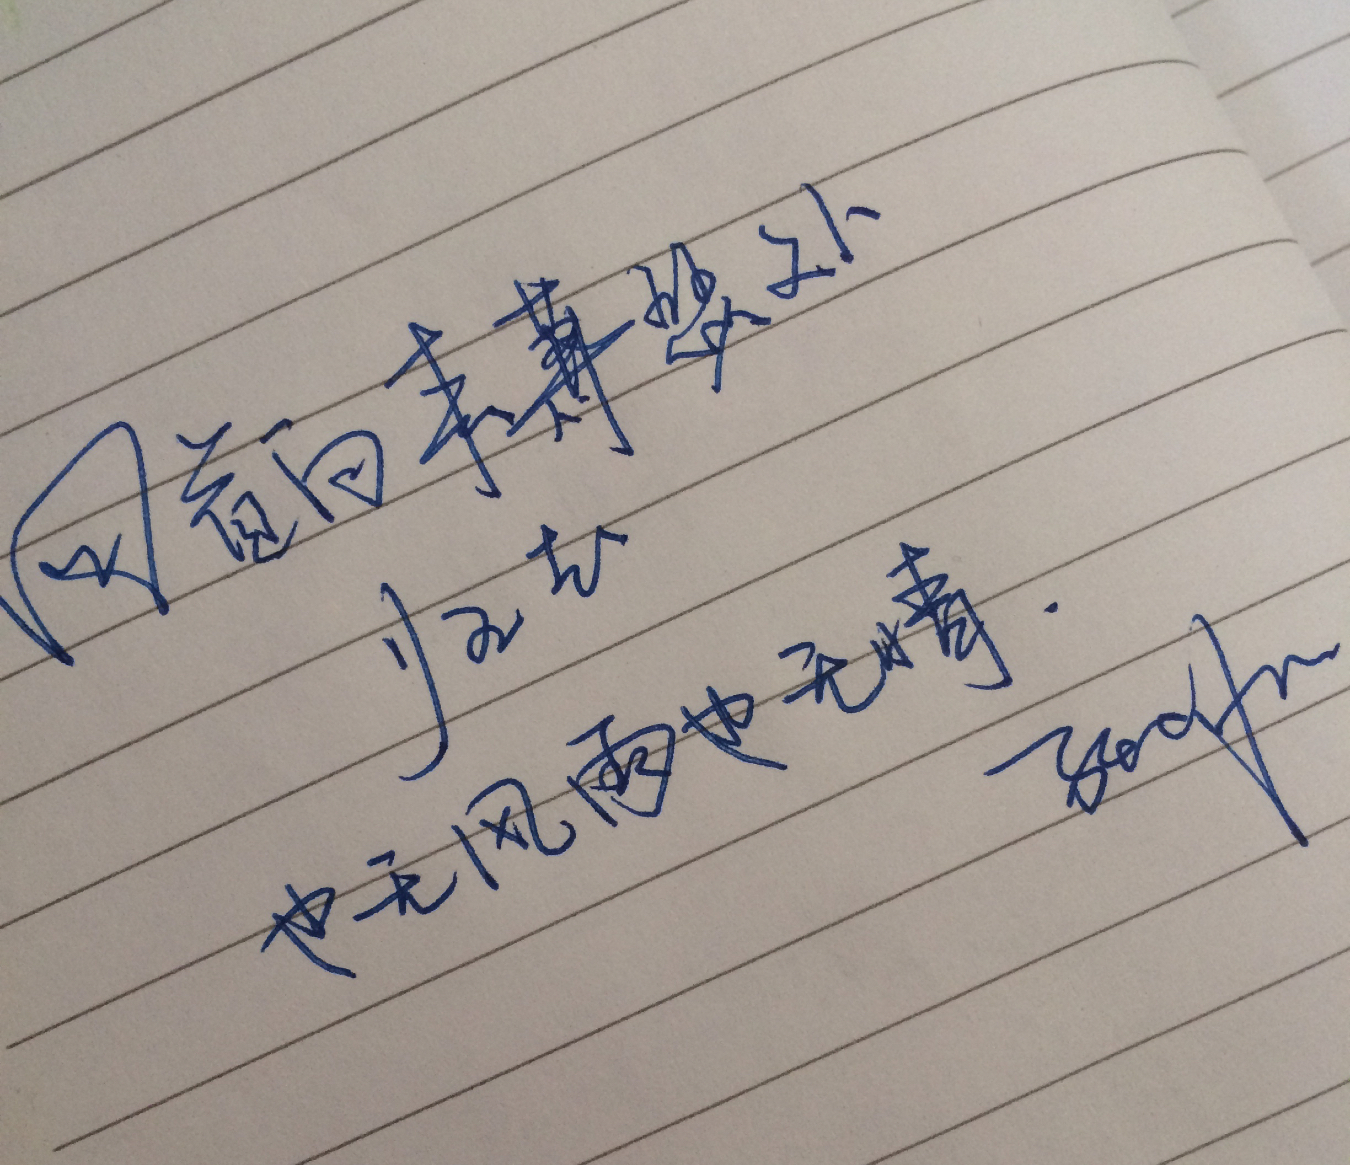 回首向来萧瑟处
归去
也无风雨也无晴.